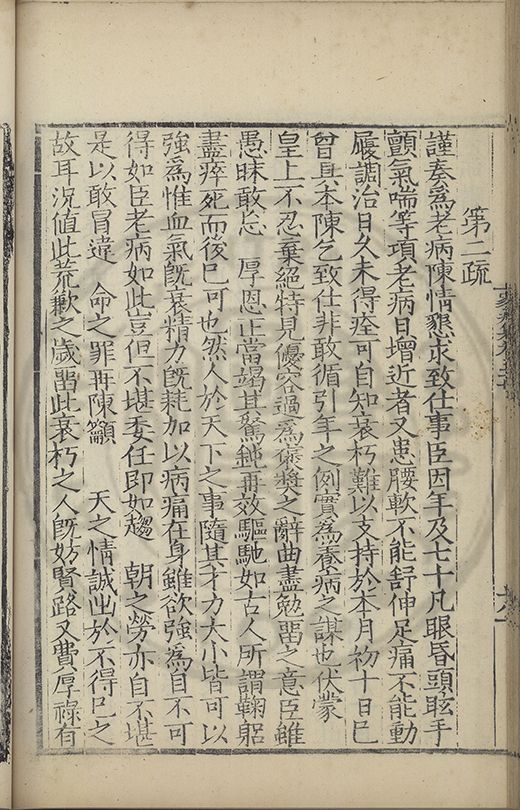 第二疏
謹奏爲老病陳情懇求致仕事臣因年及七十凡眼昏頭眩手
顫氣喘等項老病日增近者又患腰軟不能舒伸足痛不能動
履調治日久未得痊可自知衰朽難以支持於本月初十日已
曾具本陳乞致仕非敢循引年之例實爲養病之謀也伏蒙
皇上不忍棄絕特見優容過爲褒奬之辭曲盡勉畱之意臣雖
愚昧敢忘 厚恩正當竭其駑鈍再效驅馳如古人所謂鞠躬
盡瘁死而後已可也然人於天下之事隨其才力大小皆可以
強爲惟血氣旣衰精力旣耗加以病痛在身雖欲強爲自不可
得如臣老病如此豈但不堪委任即如趨 朝之勞亦自不堪
是以敢冒違 命之罪再陳籲 天之情誠出於不得已之
故耳況値此荒歉之歲畱此衰朽之人旣妨賢路又費厚祿有